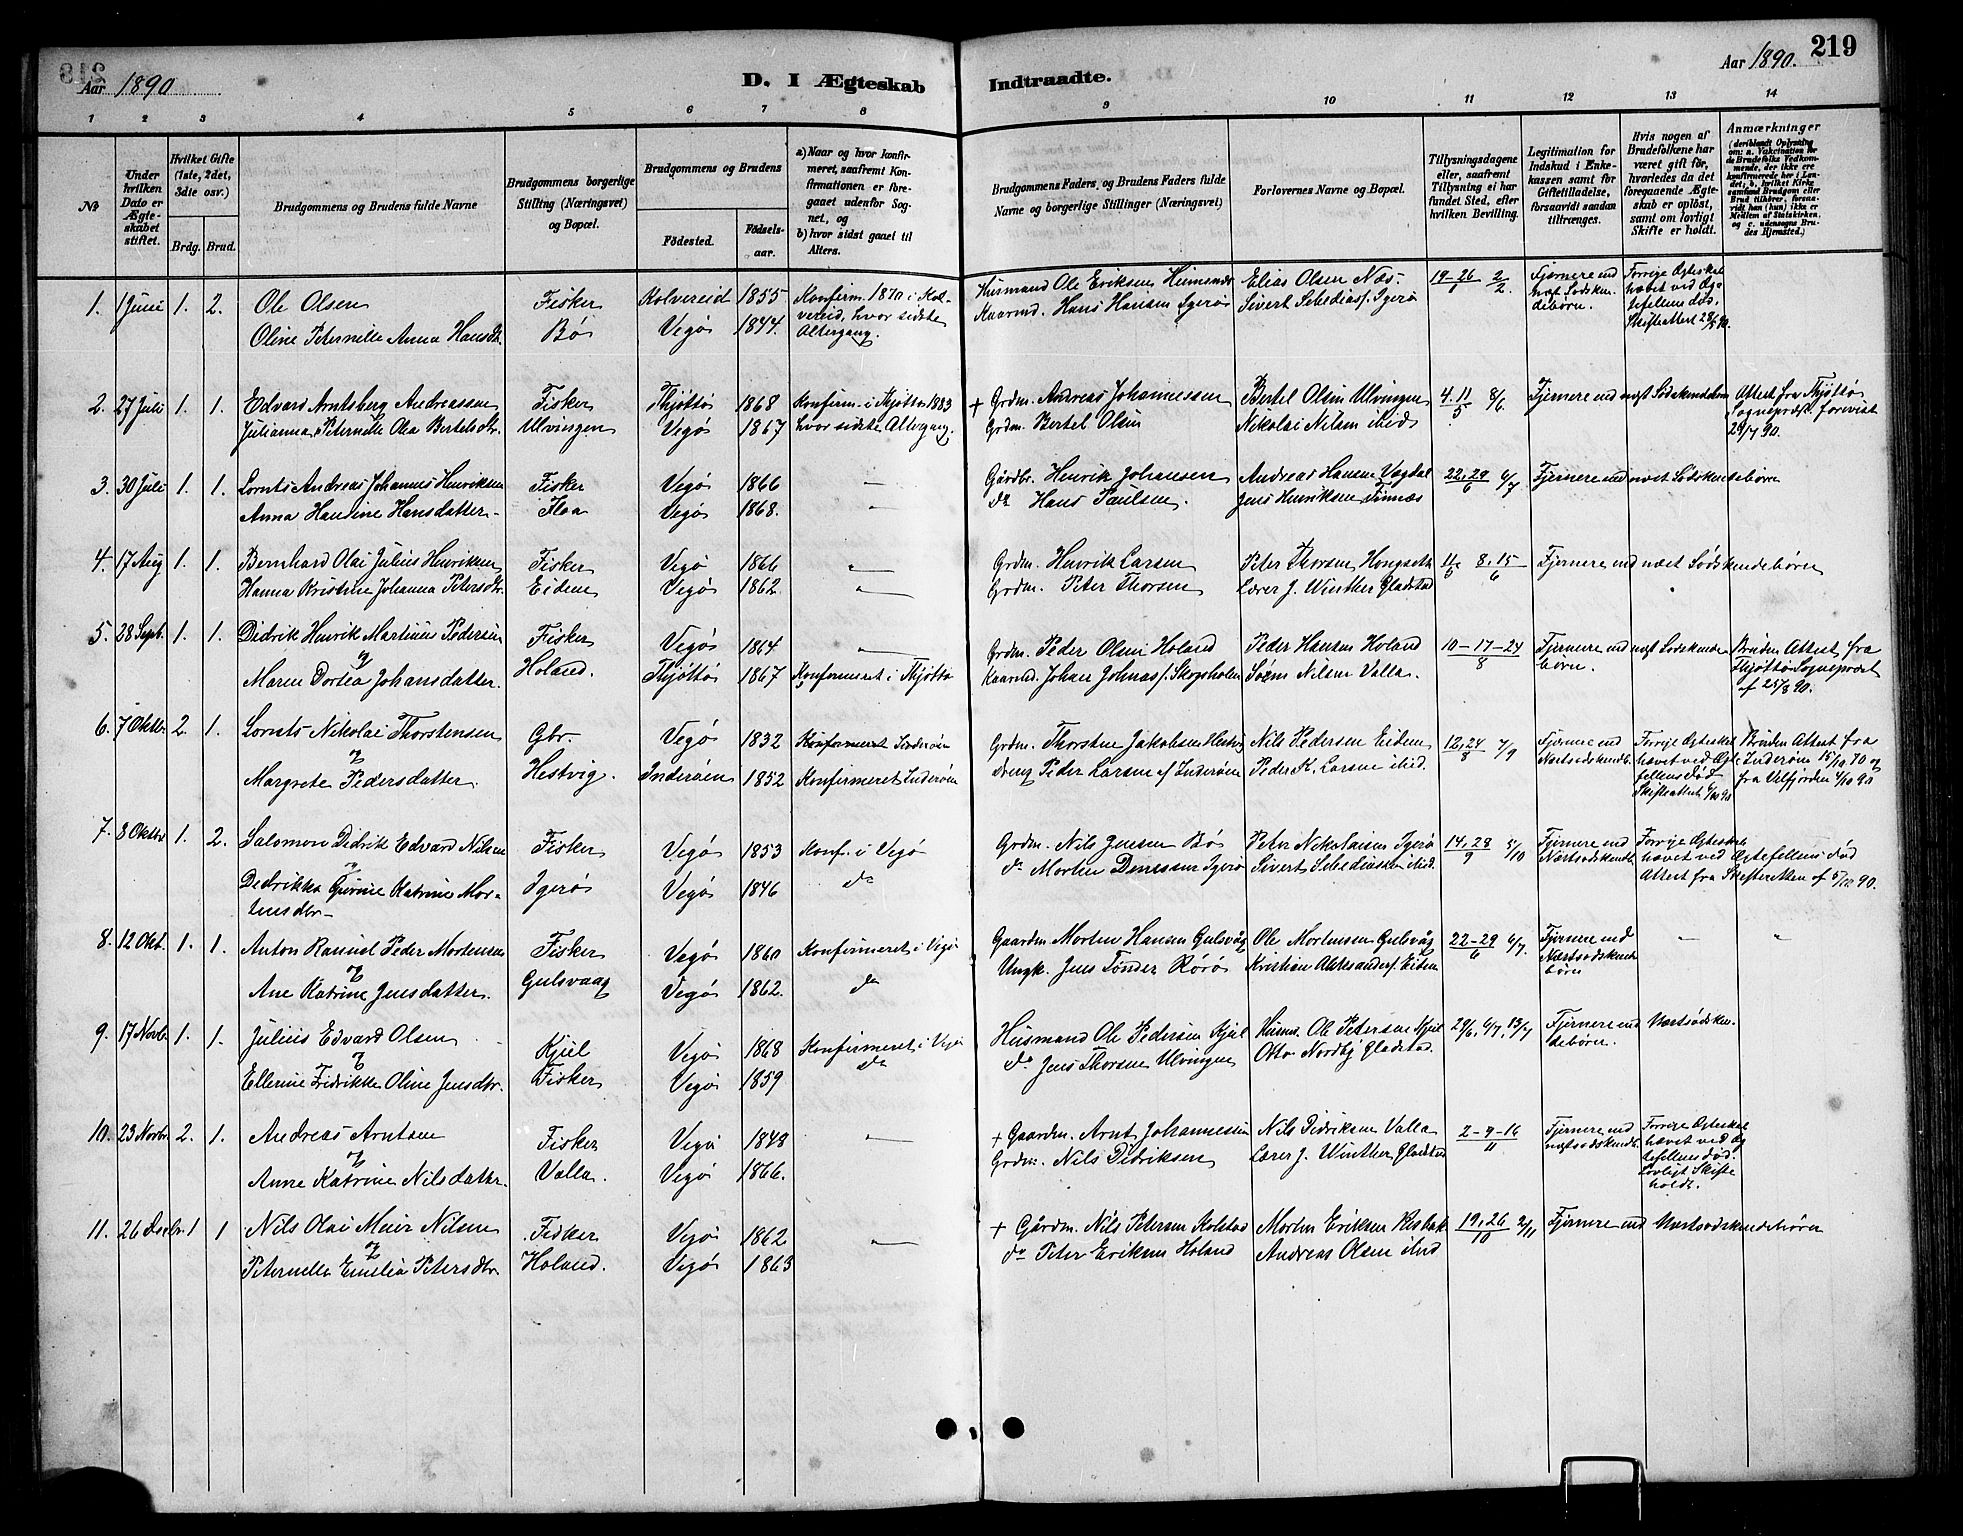 219
Aar 1890
D. I Ægteskab Indtraadte.
Aar 1890.
1 2 3 4 5 6 7 8 9 10 11 12 13 14
№
Under hvilken Dato er Ægteskabet stiftet.
Hvilket Gifte (1ste, 2det, 3die osv.)
Brdg. Brud.
Brudgommens og Brudens fulde Navne
Brudgommens borgerlige Stilling (Næringsvei) og Bopæl.
Brudgommens og Brudens
Födested.
Födsels-aar.
a) Naar og hvor konfirmeret, saafremt Konfirmationen er foregaaet udenfor Sognet, og
b) hvor sidst gaaet til Alters.
Brudgommens Faders, og Brudens Faders fulde Navne og borgerlige Stillinger (Næringsvei)
Forlovernes Navne og Bopæl.
Tillysningsdagene eller, saafremt Tillysning ei har fundet Sted, efter hvilken Bevilling.
Legitimation for Indskud i Enkekassen samt for Giftetilladelse, forsaavidt saadan tiltrænges.
Hvis nogen af Brudefolkene har været gift för, hvorledes da det foregaaende Ægteskab er oplöst, samt om lovligt Skifte er holdt.
Anmærkninger
1. 1 Juni 1. 2. Ole Olsen Fisker Kolvereid 1855 Konfirm. 1870 i Kolvereid, hvor sidste Altergang. Husmand Ole Eriksen Elias Olsen Næs. 19-26/1 2/2 Fjernere end næst Sødskendebørn. Forrige Ægteskab hævet ved Ægtefellens død. Skifteattest
Oline Peternelle Anna Hansdtr. Bø Vegø 1844. Kaarmd. Hans Hansen Igerø Sivert Sebediass. Igerø
2. 27 Juli 1. 1. Edvard Arntsberg Andreassen Fisker Thjøttø 1868 Konfirm. i Thjøttø 1883 + Grdm. Andreas Johannessen Bertel Olsen Ulvingen 4.11/5 8/6 Fjernere end næst Sødskendebørn Attest fra Thjøttø Sognepræst forevist
Julianna Peternelle Ola Bertelsdtr. Ulvingen Vegø 1867 hvor sidste Altergang. Grdm. Bertel Olsen Nikolai Nilsen ibid
3. 30 Juli 1. 1. Lornts Andreas Johannes Henriksen Fisker Vegø 1866 — Gårdbr. Henrik Johansen Andreas Hansen Vegdal 22.29/6 6/7 Fjernere end næst Sødskendebørn
Anna Hansine Hansdatter Floa Vegø 1868. — do Hans Paulsen. Jens Henriksen
4. 17 Aug 1. 1. Bernhard Olai Julius Henriksen Fisker Vegø 1866 — Grdm. Henrik Larsen Peter Thorsen Hongseth 8.15/6 Fjernere end næst Sødskendebørn
Hanna Kristine Johanna Petersdtr. Eidem Vegø 1862. — Grdm. Peter Thorsen Lærer J. Winther Gladstad
5. 28 Septb. 1. 1. Didrik Henrik Martinus Pedersen Fisker Vegø 1864 — Grdm. Peder Olsen Holand Peder Hansen Holand 10-17-24/8 Fjernere end næst Sødskendebørn. Bruden Attest fra Thjøttø Sognepræst af 25/8 90.
og
Maren Dortea Johansdatter Holand. Thjøttø 1867 Konfirmeret i Thjøttø Kaarmd. Johan Johnas/. Skogsholm Søren Nilsen Valla.
6. 7 Oktbr 2. 1. Lornts Nikolai Thorstensen Gbr. Vegø 1832 Grdm. Thorsten Jakobsen Nils Pedersen Eidem 12,24/8 7/9 Fjernere end Næstsødskendb. Forrige Ægteskab hævet ved Ægtefellens død Skifteattest Bruden Attest fra Inderøen 15/10 70 og fra Velfjorden 4/10 90
og
Margrete Pedersdatter. Hestvig. Inderøen 1852 Konfirmeret Inderøen dreng Peder Larsen af Inderøen Peder K. Larsen ibid.
7. 8 Oktbr 1. 2. Salomon Didrik Edvard Nilsen Fisker Vegø 1853 Konf. i Vegø Grdm. Nils Jensen Bø Peter Nikolaisen Igerø 14.28/9 5/10 Fjernere end Næstsødskendb. Forrige Ægteskab hævet ved Ægtefellens død Attest fra Skifteretten af 5/10 90.
og
Didrikka Gurine Katrine Mortensdtr. Igerø Vegø 1846 do do Morten Igerø Sivert Sebediassen ibid.
8. 12 Okt. 1. 1. Anton Ramuel Peder Mortensen Fisker Vegø 1860 Konfirmeret i Vegø Gaardm. Morten Hansen Gulsvåg Ole Mortensen Gulsvåg 22-29/6 6/7. Fjernere end Næstsødskendebørn — "
og
Ane Katrine Jensdatter. Gulsvaag Vegø 1862. do Ungk. Jens Tønder Rørø Kristian Aleksanders. Eidem
9. 17 Novb. 1. 1. Julius Edvard Olsen Kjul Vegø 1868 Konfirmeret i Vegø Husmand Ole Pedersen Kjul Husm. Ole Petersen Kjul 29/6, 6/7, 13/7 Fjernere end Næstsødskendebørn.
og
Ellerine Fredrikke Oline Jensdtr. Fisker Vegø 1859 do do Jens Thorsen Ulvingen Otto Nordby Gladstad.
10. 23 Novbr. 2. 1. Andreas Arntsen Fisker Vegø 1848 — + Gaardm. Arnt Johannessen Nils Didriksen Valla 2-9-16/11 Fjernere end næstsødskendb. Forrige Ægteskab hævet ved Ægtefellens død. Lovligt Skifte holdt.
og
Anne Katrine Nilsdatter. Valla. Vegø 1866. Grdm. Nils Didriksen Lærer J. Winther Gladstad
11. 26 Decbr. 1 1 Nils Olai Meier Nilsen Fisker Vegø 1862 — + Gårdm. Nils Petersen Kolstad Morten Eriksen 19.26/10 2/11 Fjernere end Næstsødskendebørn
og
Peternella Emelia Petersdtr. Holand. Vegø 1863 do Peter Eriksen Holand Andreas Olsen ibid